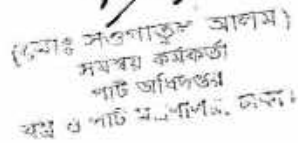 (মোঃ সওগাতুল আলম)
সমন্বয় কর্মকর্তা
পাট অধিদপ্তর
বস্ত্র ও পাট ঢাকা।